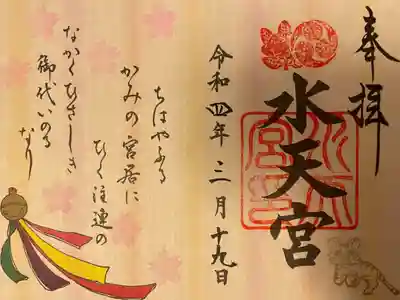 奉拝
水天宮
令和四年三月十九日
ちはやふる
かみの宮居に
ひく注連の
なかくひさしき
御代いのる
なり